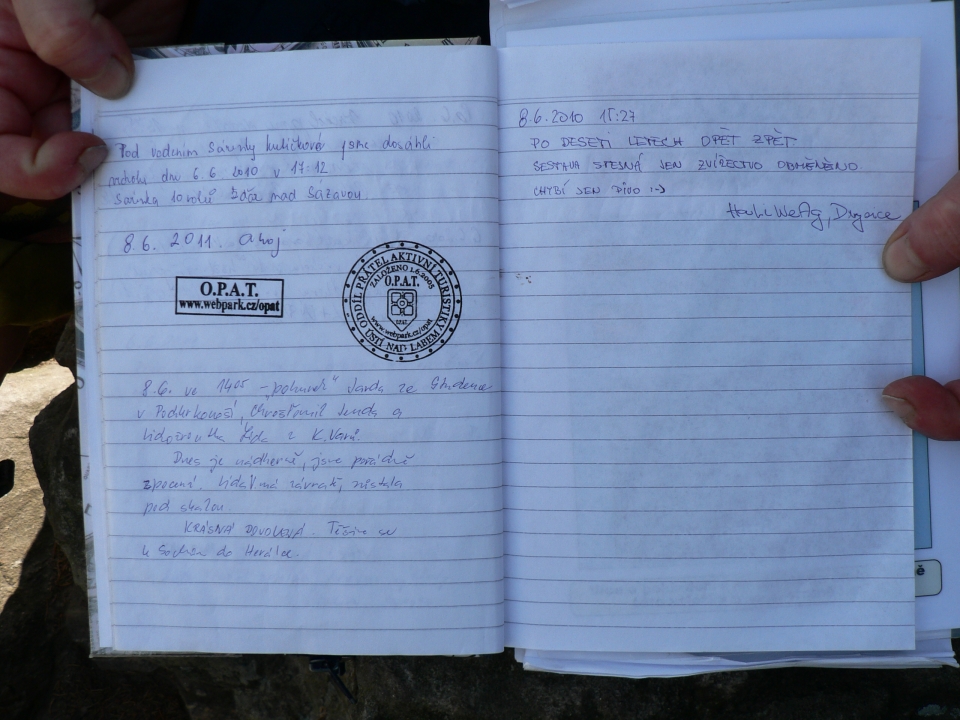 Pod vedením Sáriny kuličkové jsme dosáhli
vrcholu dne 6.6 2010 v 17:12
Sárinka 10 roků Žďár nad Sázavou
8.6. 2011. ahoj
O.P.A.T.
www.webpark.cz/opat
ODDÍL PŘÁTEL AKTIVNÍ TURISTIKY
ZALOŽENO 1.6.2005
O.P.A.T.
OPAT
www.webpark.cz/opat
ÚSTÍ NAD LABEM
8.6. ve 1405 Jarda ze Studence
v Podkrkonoší, a
Lída z K.Varů.
Dnes je nádherně, jsme pořádně
zpocení. Lída má závrať, zůstala
pod skalou
KRÁSNÁ DOVOLENÁ. Těšíme se
k Sochám do Herálce.
8.6.2010 15:27
PO DESETI LETECH OPĚT ZPĚT.
SESTAVA STEJNÁ JEN ZVÍŘECTVO OBMĚNĚNO.
CHYBÍ JEN PIVO :-)